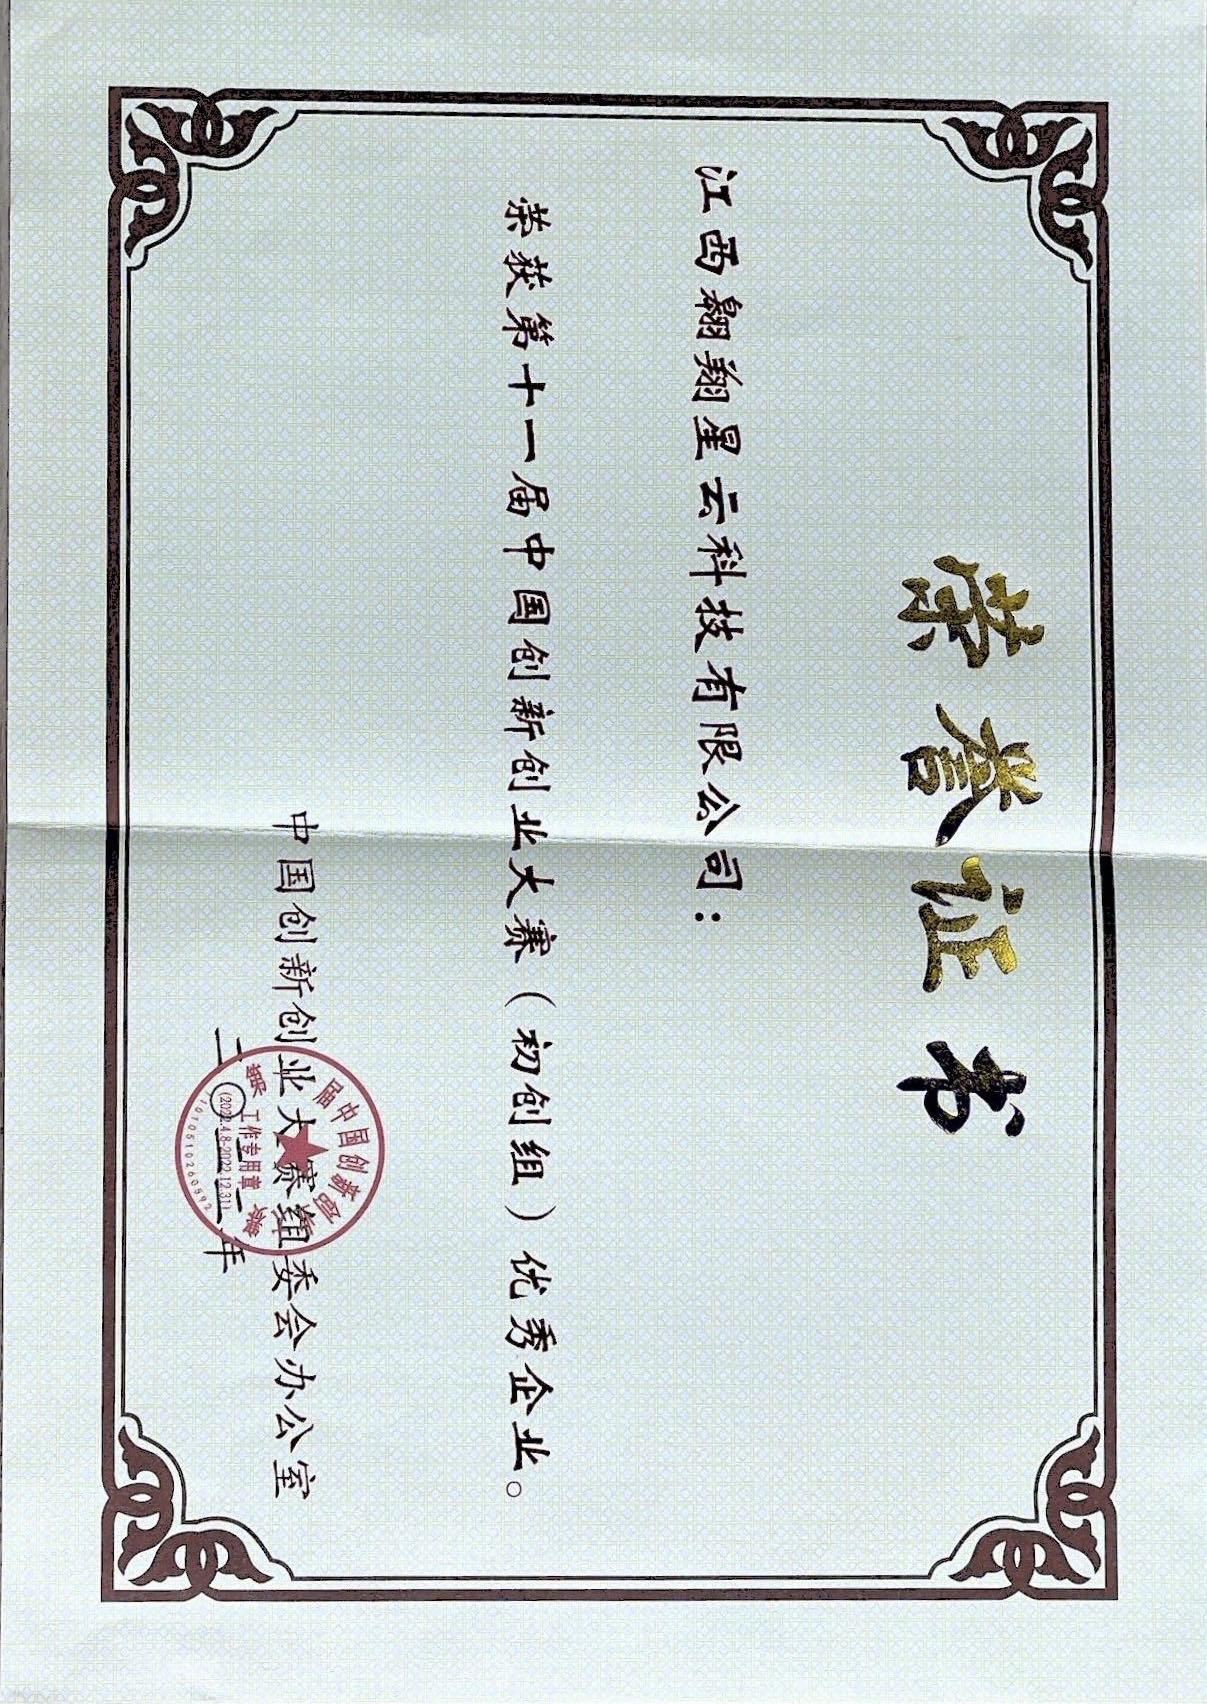 荣誉证书
江西翱翔星云科技有限公司：
荣获第十一届中国创新创业大赛（初创组）优秀企业。
中国创新创业大赛组委会办公室
二〇二二年
届中国创新创
工作专用章
(2022.4.8-2022.12.31)
1101051026059２